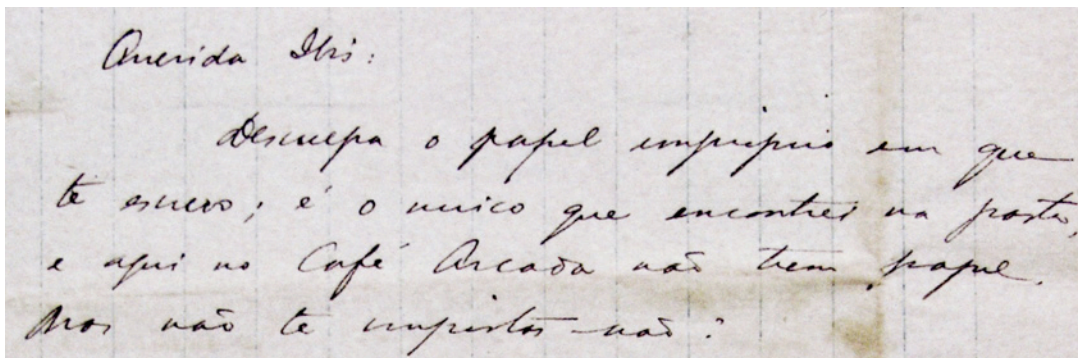 Querida Ibis:
Desculpa o papel improprio em que
te escrevo; é o unico que encontrei na pasta,
e aqui no Café Arcada não teem papel.
Mas não te importas não?